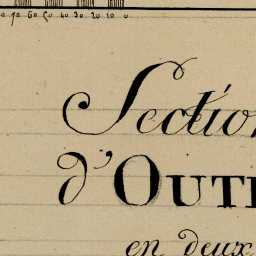 60 50 40 30 20 10 0
Section
d'OUT
en deux